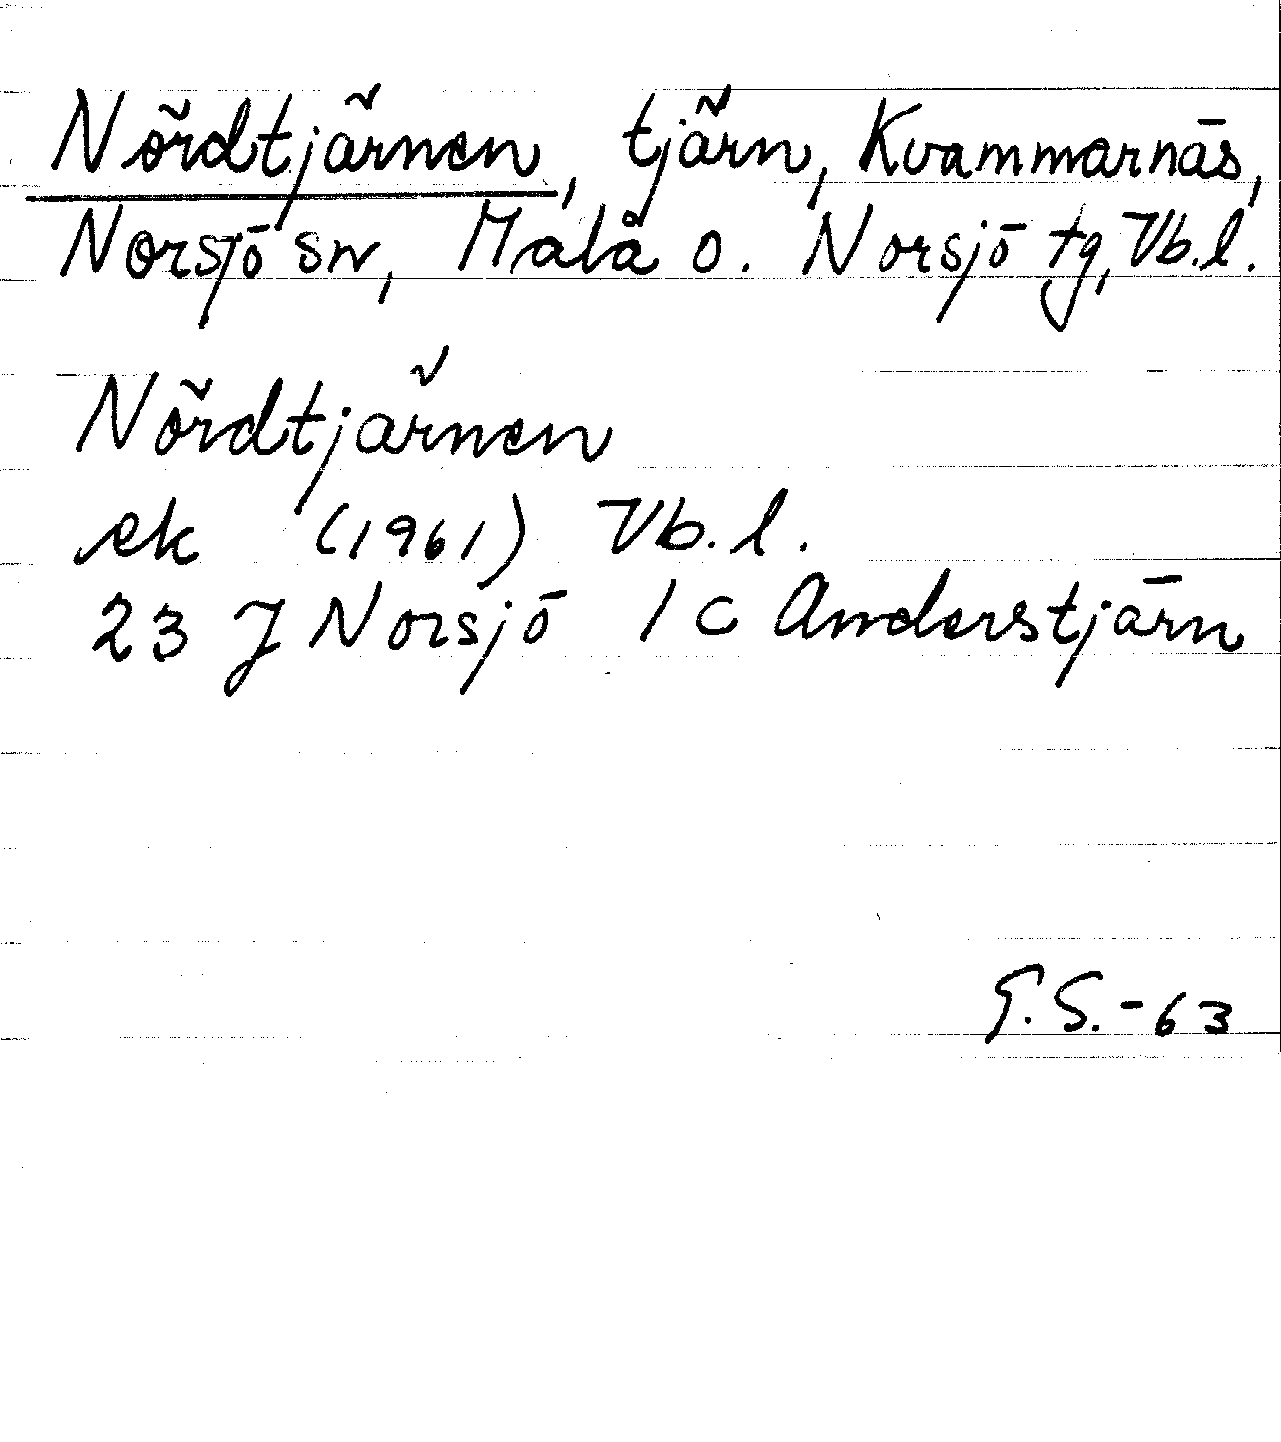 Nördtjärnen, tjärn, Kvammarnäs,
Norsjö sn, Malå o. Norsjö tg, Vb.l.
Nördtjärnen
ek (1961) Vb.l.
23 J Norsjö 1 c Anderstjärn
G.S.-63